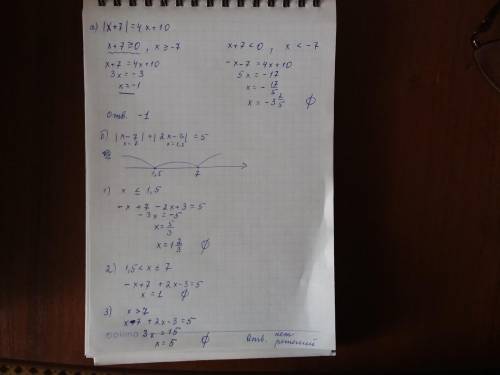 а) |x+7|=4x+10
x+7≥0, x≥-7
x+7=4x+10
3x=-3
x=-1
x+7<0, x<-7
-x-7=4x+10
5x=-17
x=-17/5
x=-3 2/5 ∅
Отв. -1
б) |x-7|+|2x-3|=5
x=7 x=1,5
1,5 7
1) x ≤ 1,5
-x+7-2x+3=5
-3x=-5
x=5/3
x=1 2/3 ∅
2) 1,5<x≤7
-x+7+2x-3=5
x=1 ∅
3) x>7
x-7+2x-3=5
3x=15
x=5 ∅
Отв. нет решений